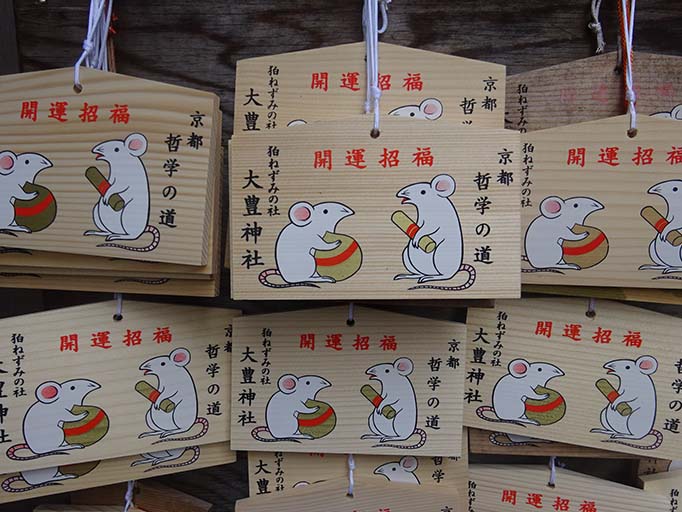 開運招福
京都
哲学の道
開運招福
狛ねずみの社
大豊
京都
哲学
開運招福
狛ねずみの社
大豊神社
京都
哲学の道
開運招福
狛ねずみの社
開運招福
狛ねずみの社
大豊神
哲学の道
開運招福
狛ねずみの社
大豊神社
京都
哲学の道
開運招福
狛ねずみの社
大豊神社
開運招福
開運招福